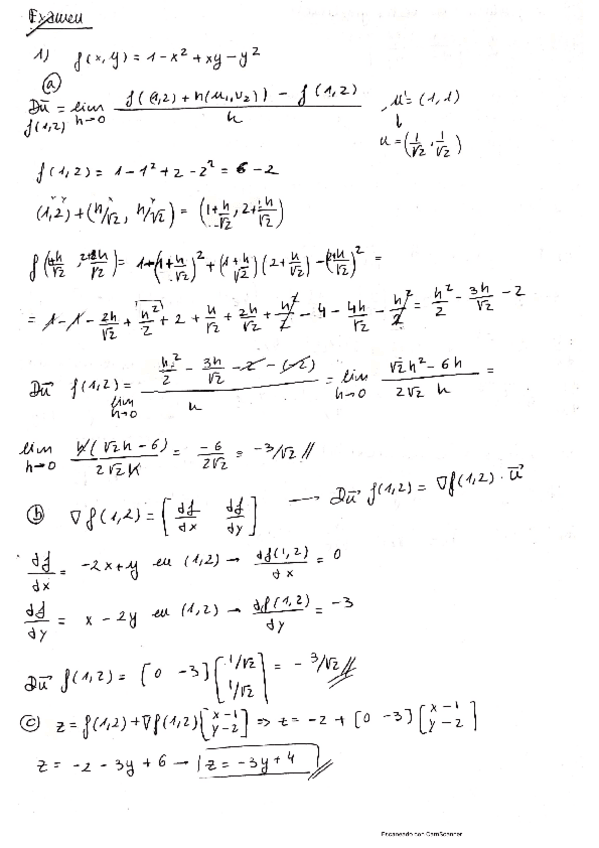 Examen
1) f(x,y) = 1 - x² + xy - y²
(a)
Dū f(1,2) = lim h→0 [f((1,2) + h(u₁,u₂)) - f(1,2)] / h , u' = (1,1)
↓
u = (1/√2, 1/√2)
f(1,2) = 1 - 1² + 2 - 2² = -2
(1,2) + (h/√2, h/√2) = (1 + h/√2, 2 + h/√2)
f(1 + h/√2, 2 + h/√2) = 1 - (1 + h/√2)² + (1 + h/√2)(2 + h/√2) - (2 + h/√2)² =
= 1 - 1 - 2h/√2 + h²/2 + 2 + h/√2 + 2h/√2 + h²/2 - 4 - 4h/√2 - h²/2 = h²/2 - 3h/√2 - 2
Dū f(1,2) = lim h→0 [h²/2 - 3h/√2 - 2 - (-2)] / h = lim h→0 (√2h² - 6h) / (2√2 h) =
lim h→0 h(√2h - 6) / (2√2h) = -6/(2√2) = -3/√2 //
(b) ∇f(1,2) = [df/dx df/dy] → Dū f(1,2) = ∇f(1,2) · ū
df/dx = -2x + y en (1,2) → df(1,2)/dx = 0
df/dy = x - 2y en (1,2) → df(1,2)/dy = -3
Dū f(1,2) = [0 -3] [1/√2 1/√2] = -3/√2 //
(c) z = f(1,2) + ∇f(1,2) [x-1 y-2] ⇒ z = -2 + [0 -3] [x-1 y-2]
z = -2 - 3y + 6 → z = -3y + 4 //
Escaneado con CamScanner